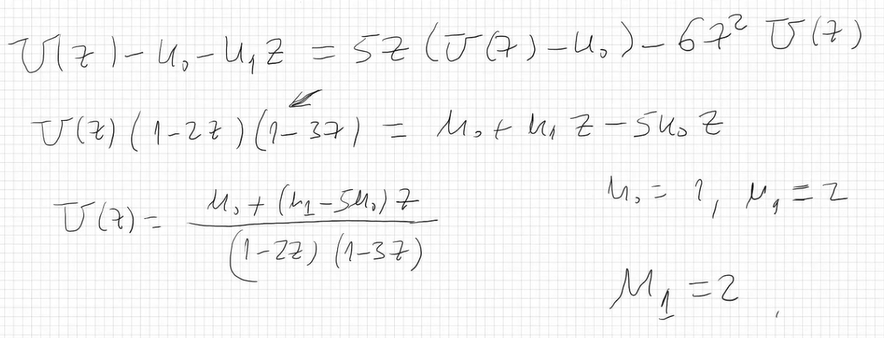 U(z) - u₀ - u₁z = 5z (U(z) - u₀) - 6z² U(z)
U(z) (1-2z) (1-3z) = u₀ + u₁ z - 5u₀ z
U(z) = (u₀ + (u₁ - 5u₀) z) / ((1-2z) (1-3z))
u₀ = 1, u₁ = 2
u₁ = 2